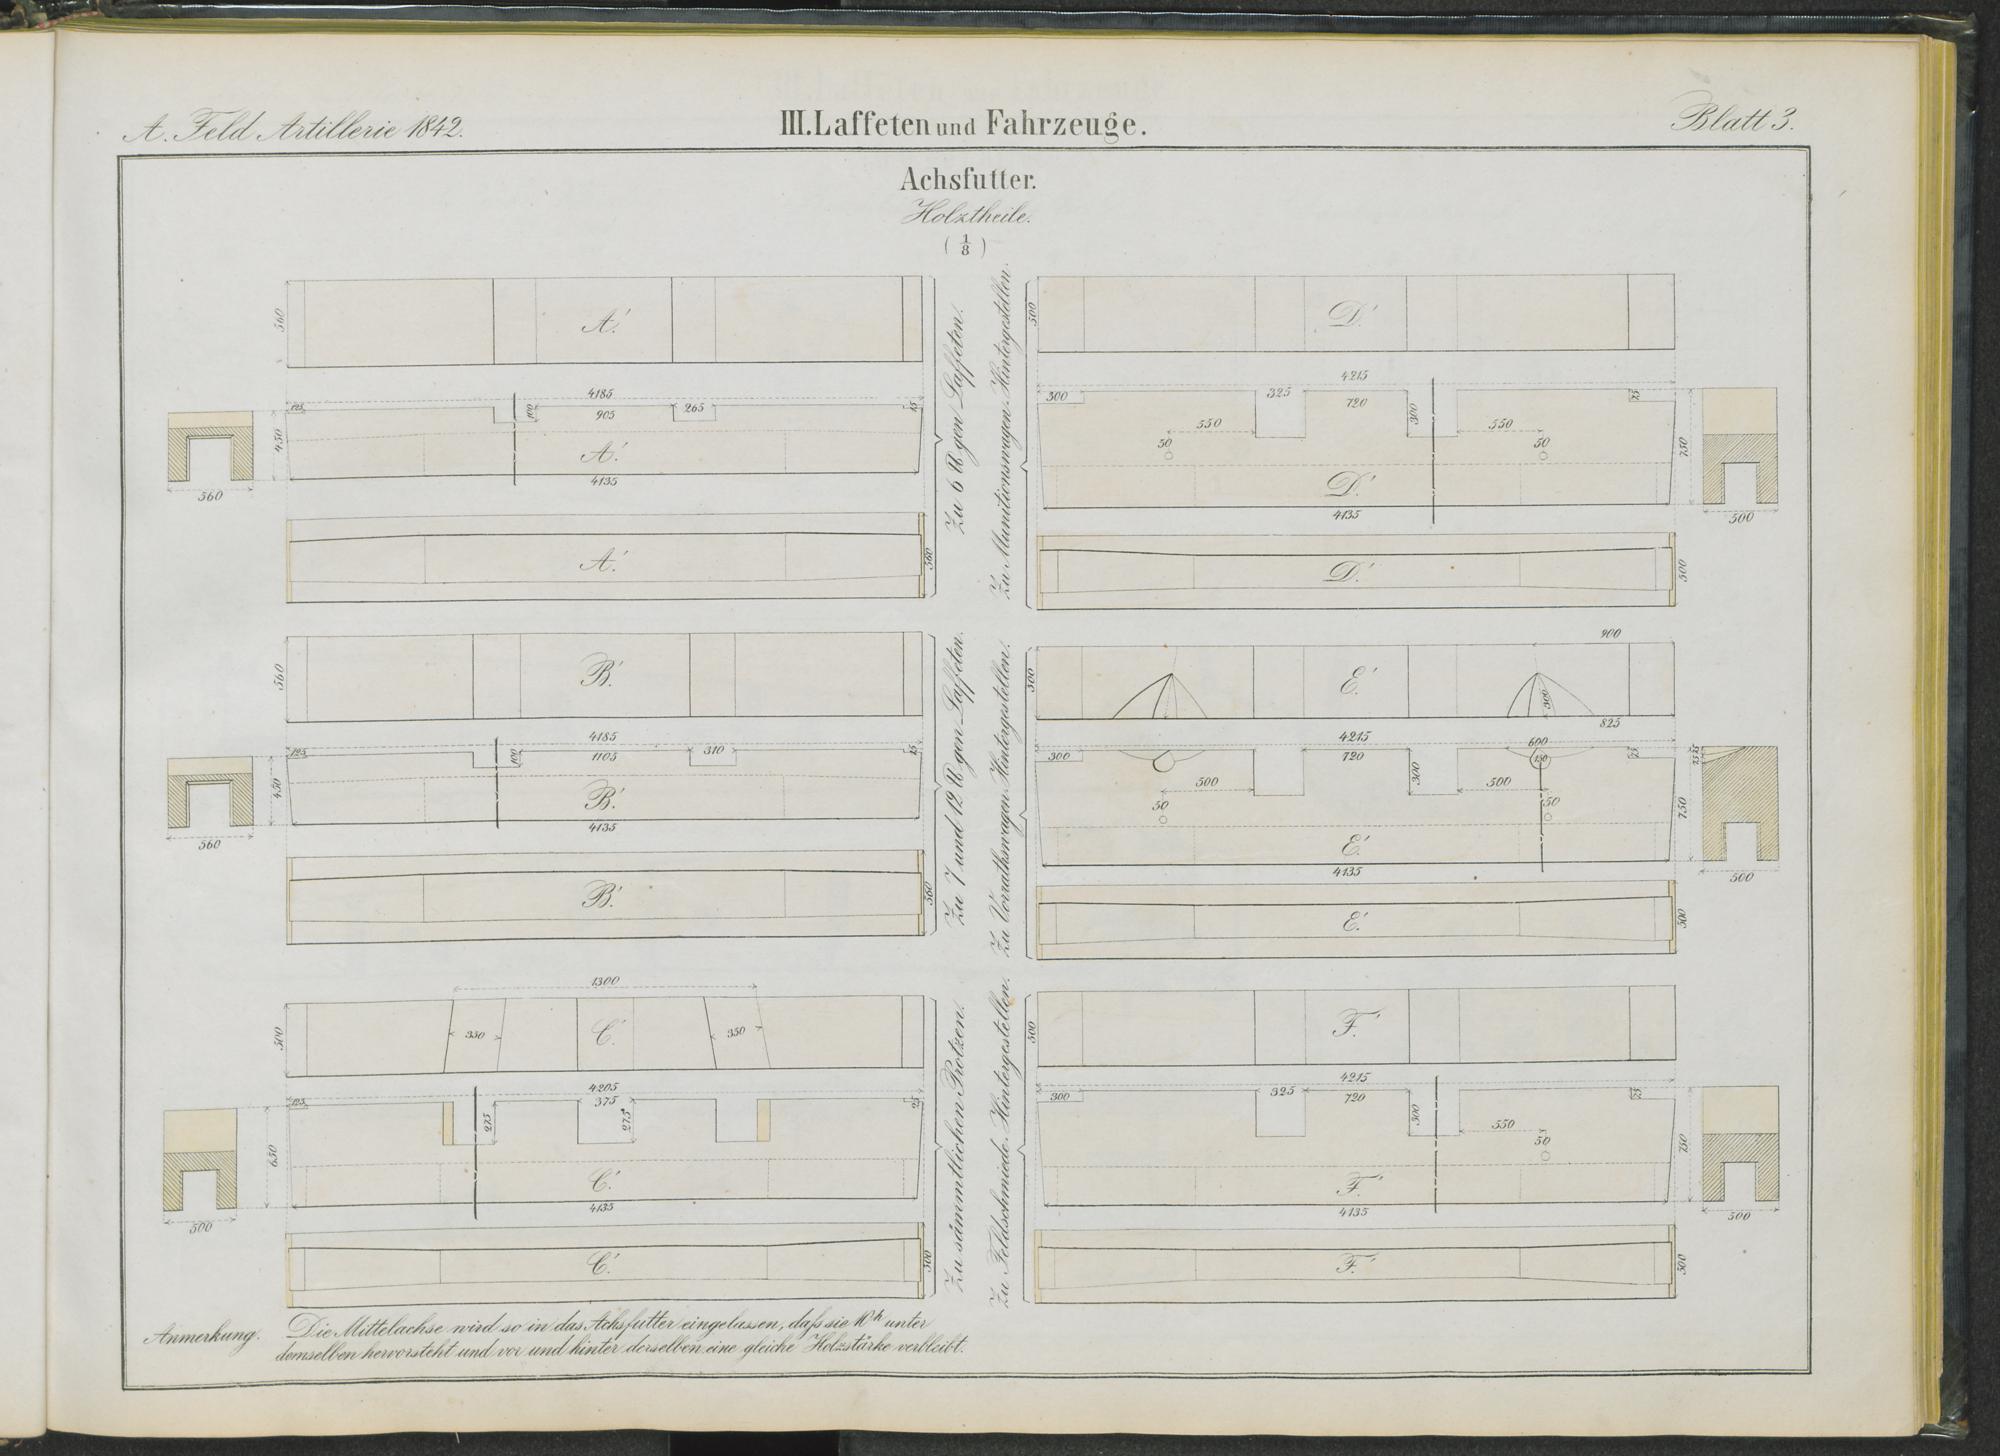 A. Feld Artillerie 1842.
III. Laffeten und Fahrzeuge.
Blatt 3.
Achsfutter.
Holztheile.
( 1/8 )
560
A.'
4185
125
100
905
265
15
450
A.'
4135
560
A.'
560
Zu 6 ℔gen Laffeten.
560
B.'
4185
125
100
1105
310
15
450
B.'
4135
560
B.'
560
Zu 7 und 12 ℔gen Laffeten.
1300
500
350
C.'
350
4205
125
275
375
275
25
650
C.'
4135
500
C.'
500
Zu sämmtlichen Protzen.
Zu Munitionswagen-Hintergestellen.
500
D.'
4215
300
325
720
300
75
550
550
50
50
750
D.'
4135
500
D.'
500
Zu Vorrathswagen-Hintergestellen.
900
500
E.'
300
825
4215
600
300
720
300
150
75
75
500
500
50
50
750
E.'
4135
500
E.'
500
Zu Feldschmiede-Hintergestellen.
500
F.'
4215
300
325
720
300
75
550
50
750
F.'
4135
500
F.'
500
Anmerkung. Die Mittelachse wird so in das Achsfutter eingelassen, daſs sie 10h unter
demselben hervorsteht und vor und hinter derselben eine gleiche Holzstärke verbleibt.